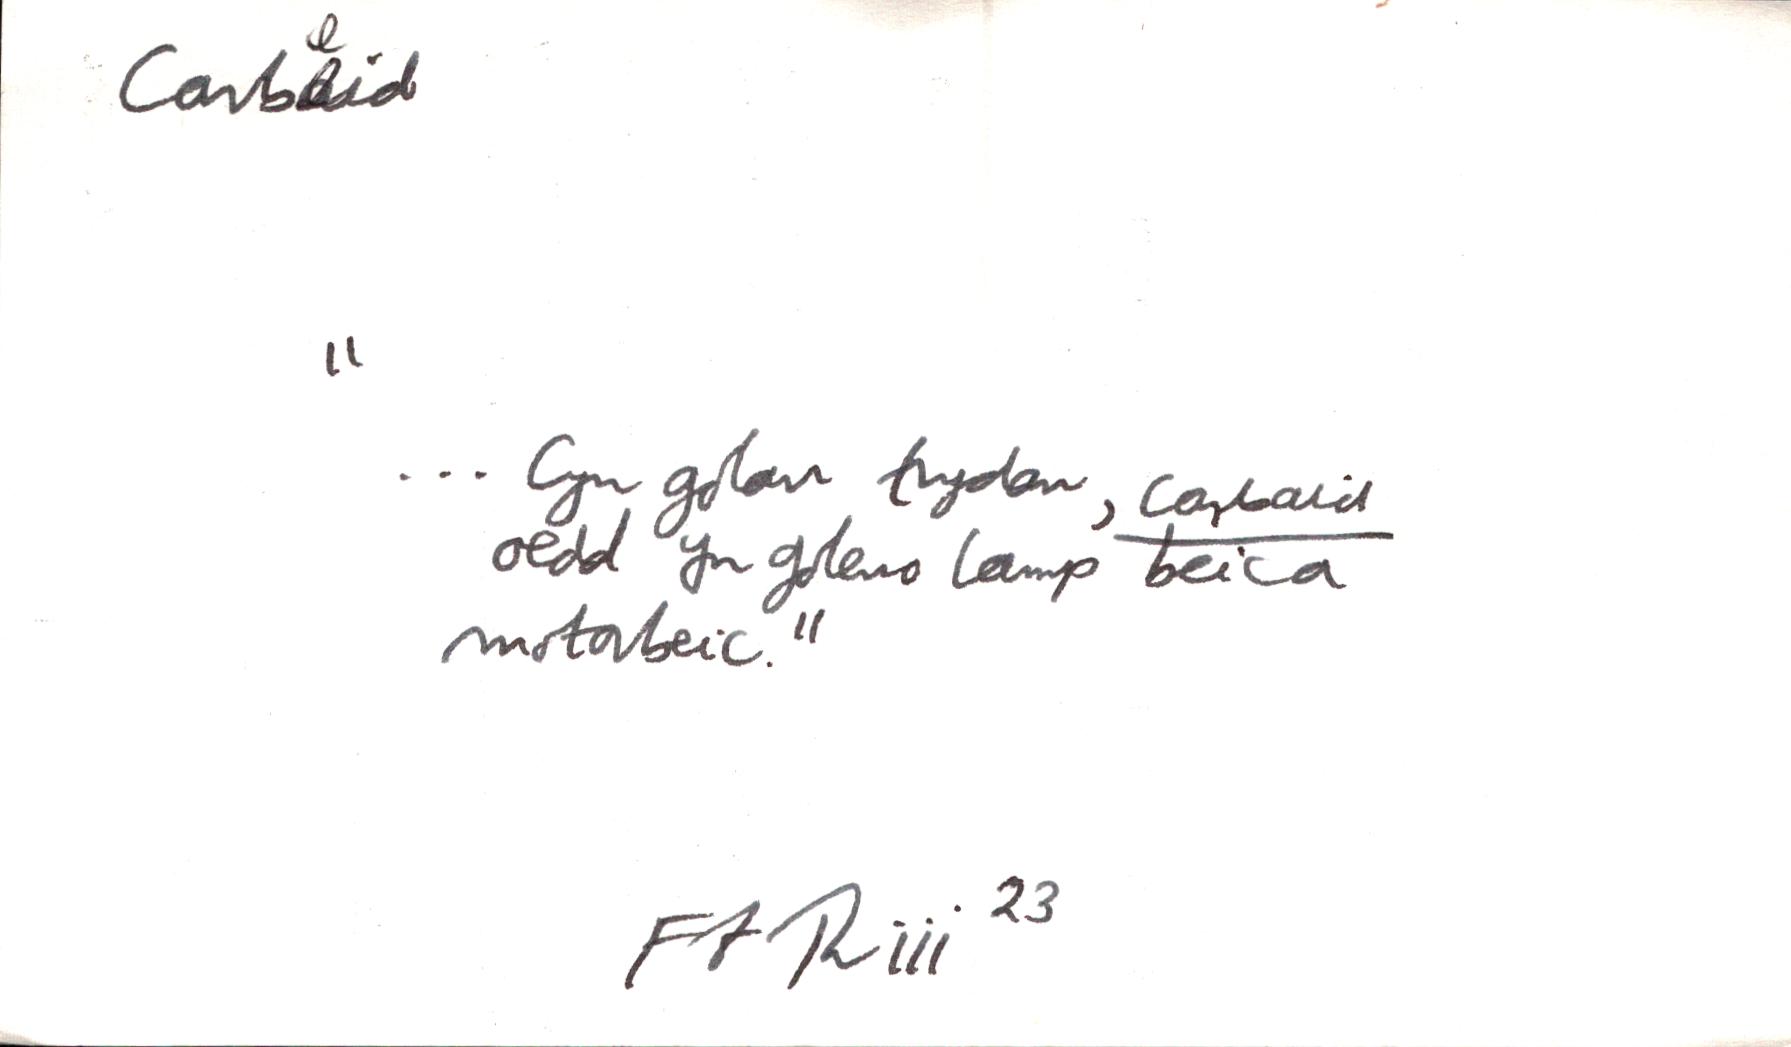 Carbeid
"
... Cyn golau trydan, carbaid
oedd yn goleuo lamp beic a
motorbeic."
iii 23